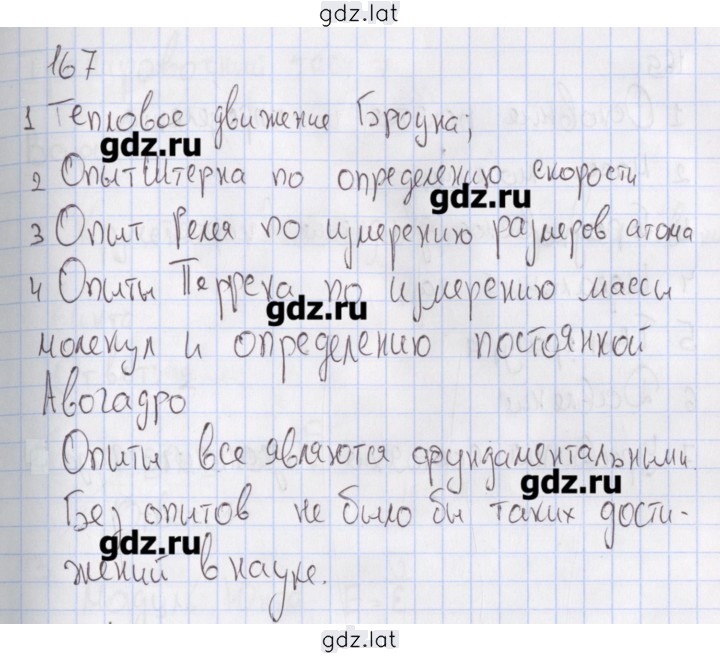 gdz.lat
167
1 Тепловое движение Броуна;
gdz.ru
2 Опыт Штерна по определению скорости
gdz.ru
3 Опыт Релея по измерению размеров атома
4 Опыты Перрена по измерению массы
gdz.ru
молекул и определению постоянной
Авогадро
Опыты все являются фундаментальными.
gdz.ru
Без опытов не было бы таких дости-
gdz.ru
жений в науке.
gdz.lat